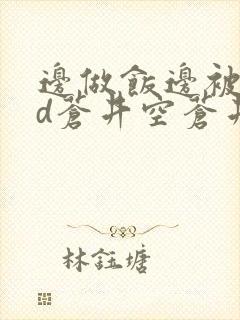 邊做飯邊被
d蒼井空蒼井
林鈺塘